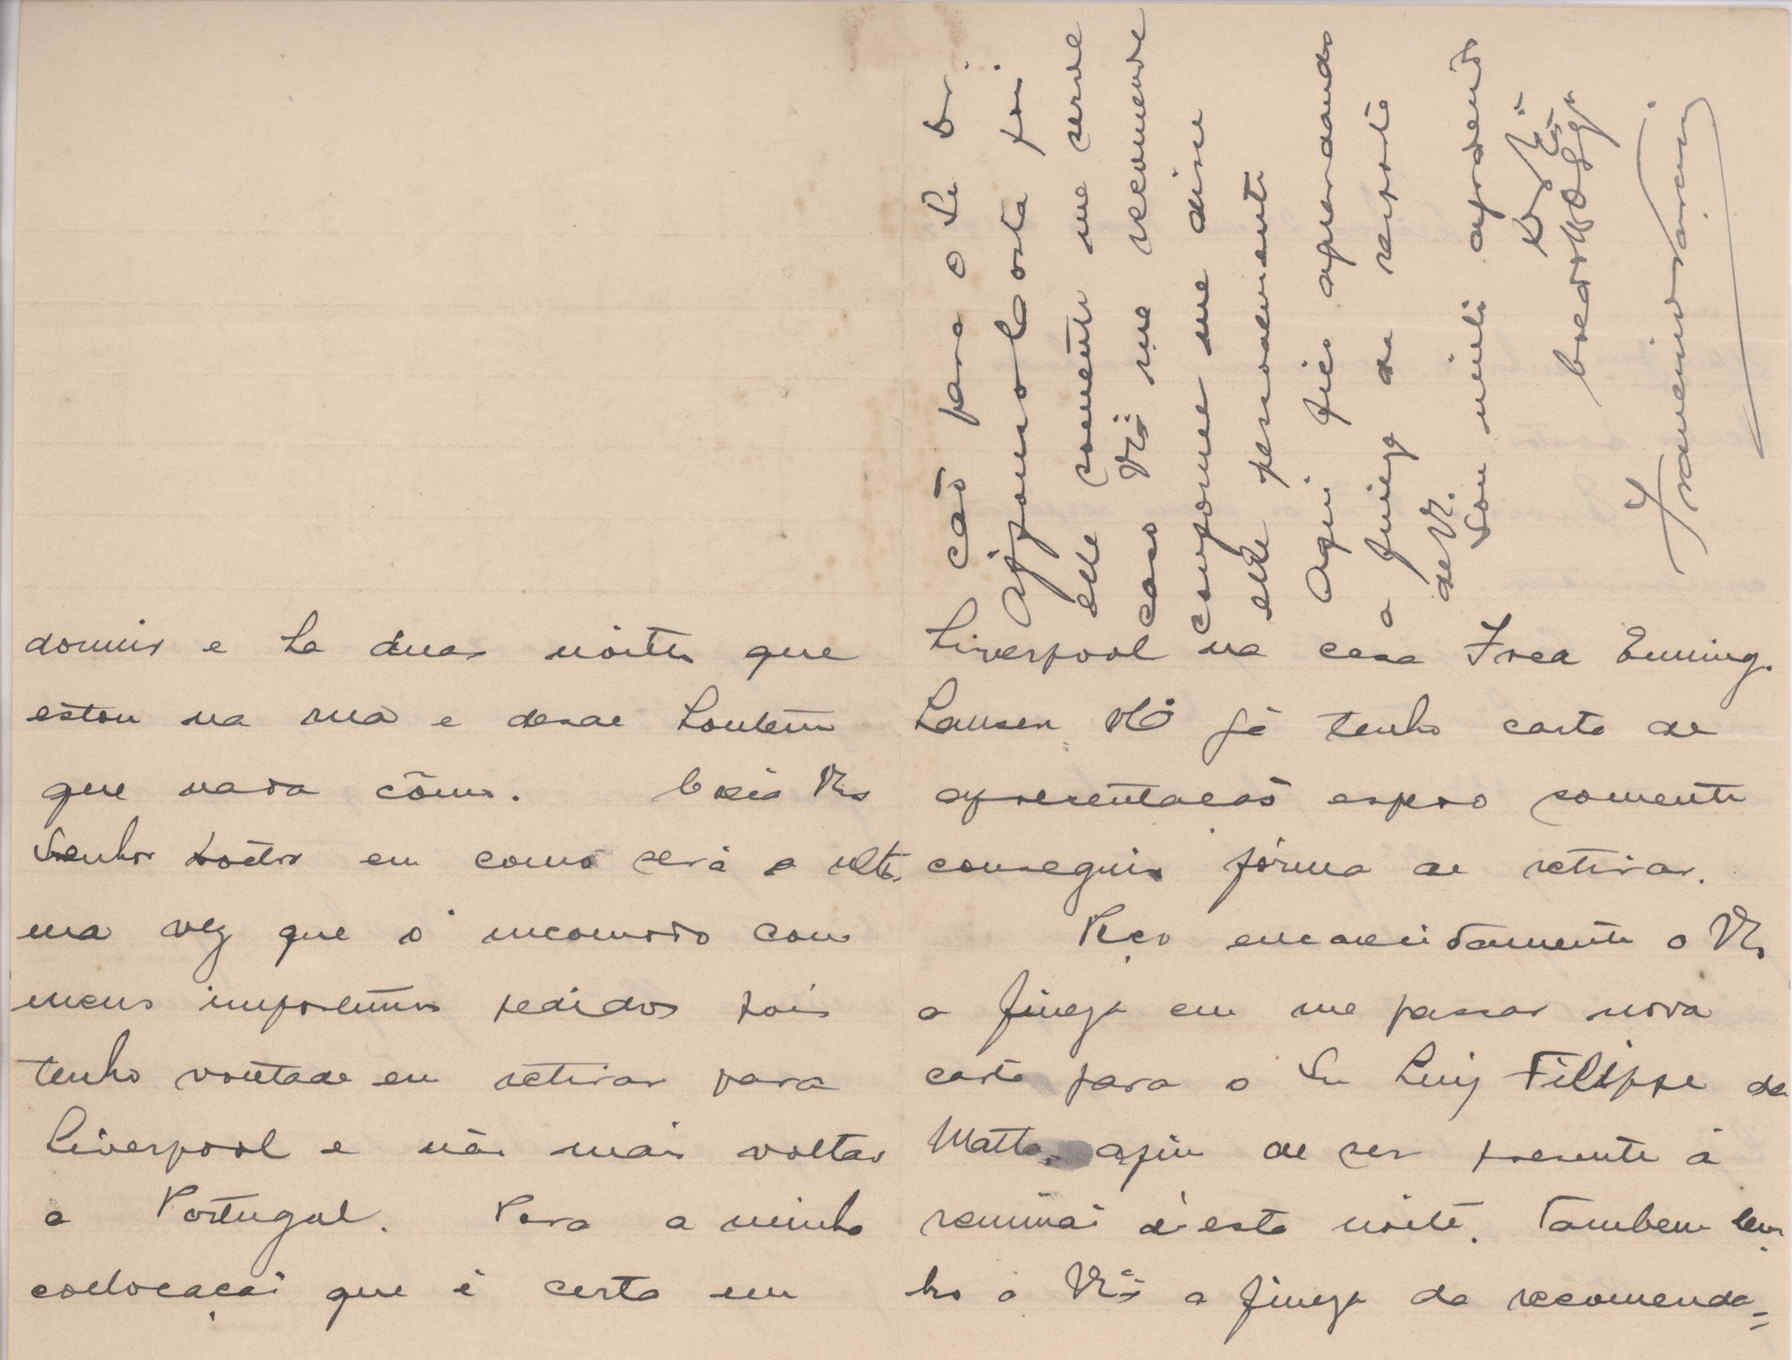 dormir e ha duas noites que
estou na rua e desde hontem
que nada cômo. Creia V.
Senhor Doctor em como será a ulti
ma vez que o incomodo com
meus impertinentes pedidos pois
tenho vontade em retirar para
Liverpool e não mais voltar
a Portugal. Para a minha
collocação que é certa em
Liverpool na casa Fred
já tenho carta de
apresentacão espero somente
conseguir fórma de retirar.
Peço encarecidamente a V.
a fineza em me passar nova
carta para o Sr Luiz Filippe da
Matta, afim de ser presente á
reunião d'esta noite. Tambem lem
bro a V. a fineza da recomenda=
cão para o Sr Dr.
Affonso Costa pois
elle somente me serve
caso V. me recomende
conforme me disse
elle pessoalmente
Aqui fico aguardando
a fineza da resposta
de V.
Sou muito
De V. Ex.
Francisco